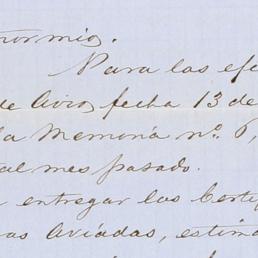 Señor mio.
Para las efe
de Avio, fecha 13 de
la Memoria nº 6,
tal mes pasado.
entregar las Certi
as Aviadas, estim